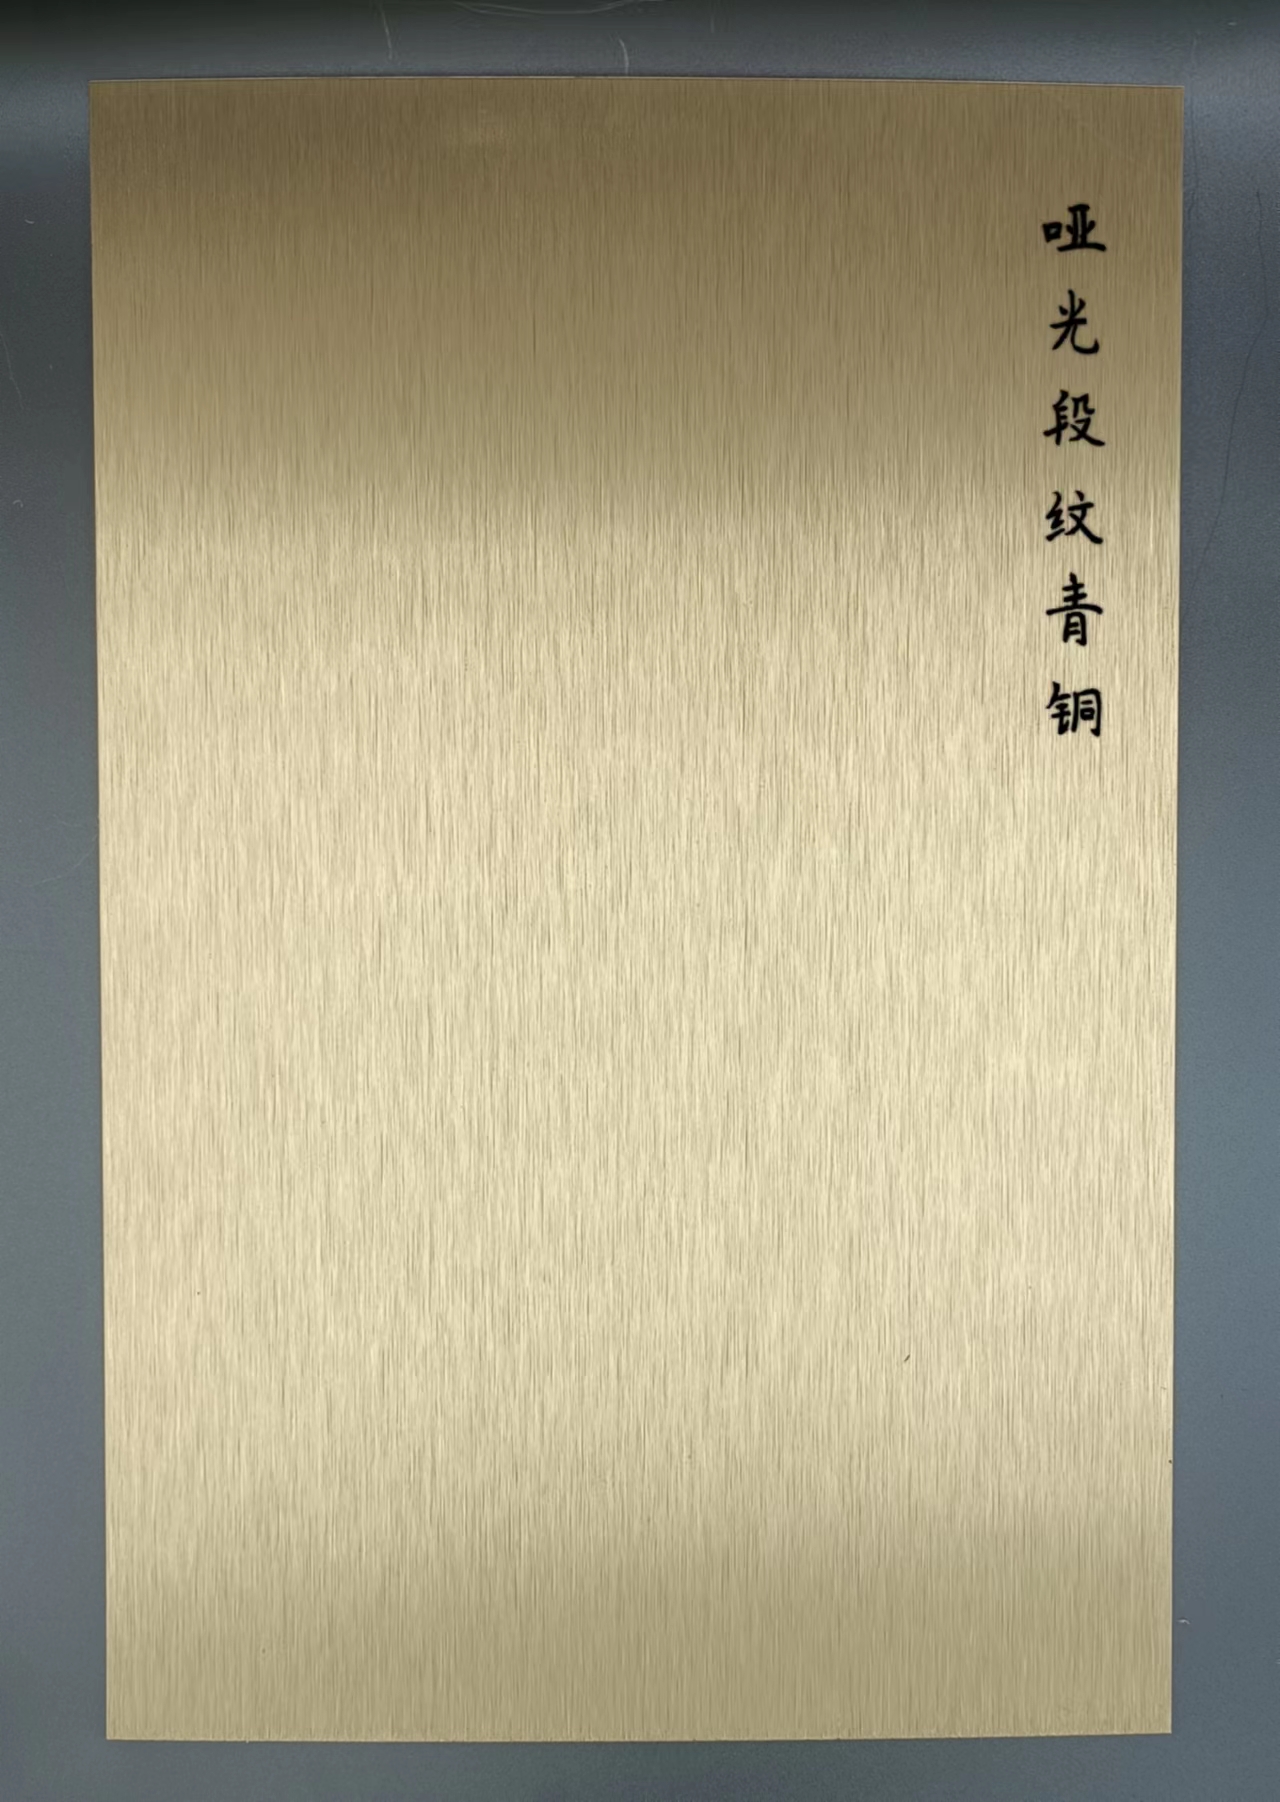 哑光段纹青铜